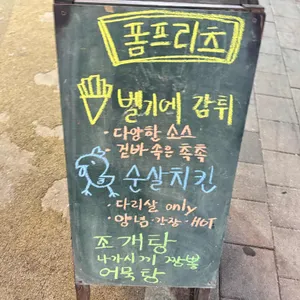 폼프리츠
벨기에 감튀
· 다양한 소스
· 겉바속은 촉촉
순살치킨
· 다리살 only
· 양념 · 간장 · HOT
조개탕
나가시끼 짬뽕
어묵탕